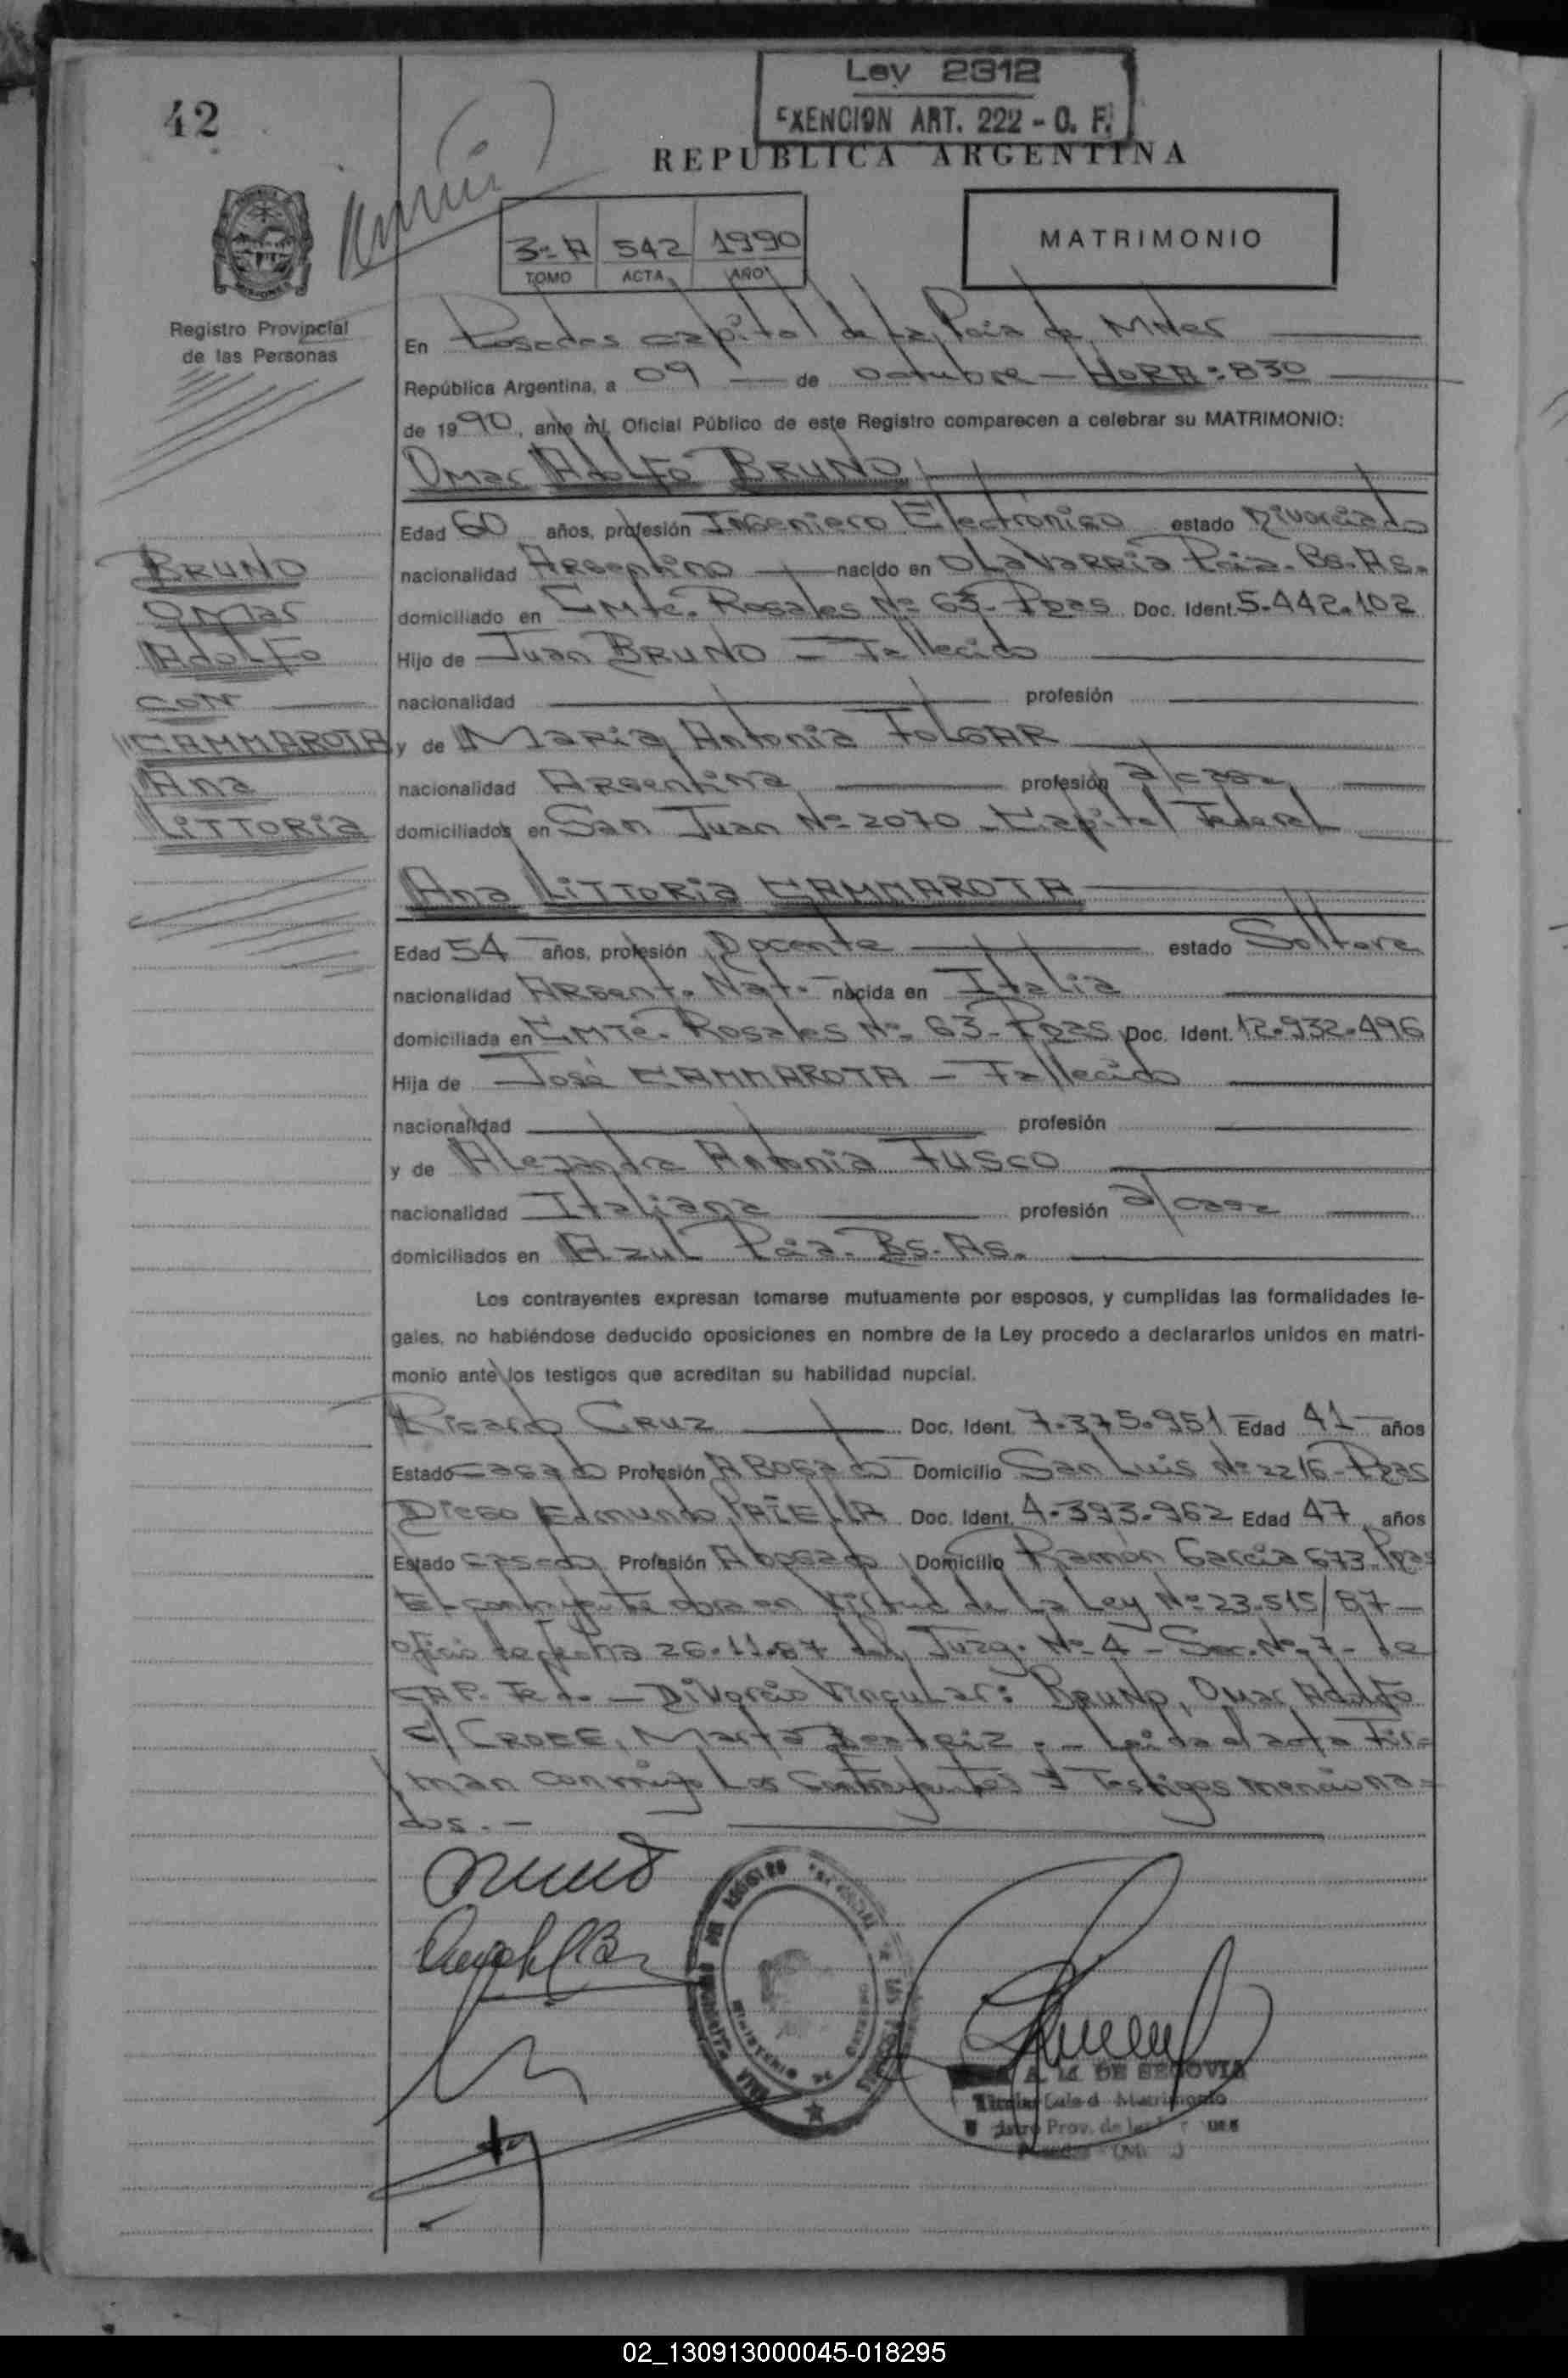 Ley 2312
EXENCION ART. 222 - C. F.
42
REPUBLICA ARGENTINA
3º A 542 1990
TOMO ACTA AÑO
MATRIMONIO
Registro Provincial
de las Personas
En Posadas capital de la Pcia de Mnes
República Argentina, a 09 de octubre - HORA: 830
de 1990, ante mí, Oficial Público de este Registro comparecen a celebrar su MATRIMONIO:
Omar Adolfo BRUNO
Edad 60 años, profesión Ingeniero Electrónico estado Divorciado
BRUNO
Omar
Adolfo
con
CAMMAROTA
Ana
LITTORIA
nacionalidad Argentino nacido en OLAVARRIA Pcia. Bs. As.
domiciliado en Cmte. Rosales Nº 63 - Pdas Doc. Ident. 5.442.102
Hijo de Juan BRUNO - Fallecido
nacionalidad profesión
y de María Antonia FOLGAR
nacionalidad Argentina profesión a/casa
domiciliados en San Juan Nº 2070 - Capital Federal
Ana LITTORIA CAMMAROTA
Edad 54 años, profesión Docente estado Soltera
nacionalidad Argent. Nat. nacida en Italia
domiciliada en Cmte. Rosales Nº 63 - Pdas Doc. Ident. 12.932.496
Hija de José CAMMAROTA - Fallecido
nacionalidad profesión
y de Alejandra Antonia FUSCO
nacionalidad Italiana profesión a/casa
domiciliados en Azul Pcia. Bs. As.
Los contrayentes expresan tomarse mutuamente por esposos, y cumplidas las formalidades le-
gales, no habiéndose deducido oposiciones en nombre de la Ley procedo a declararlos unidos en matri-
monio ante los testigos que acreditan su habilidad nupcial.
Ricardo CRUZ Doc. Ident. 7.375.951 Edad 41 años
Estado casado Profesión Abogado Domicilio San Luis Nº 2216 - Pdas
Diego Edmundo Doc. Ident. 4.393.962 Edad 47 años
Estado casado Profesión Abogado Domicilio Ramón García 673 - Pdas
El contrayente obra en virtud de La Ley Nº 23.515/87 -
oficio de fecha 26.11.87 del Juzg. Nº 4 - Sec. Nº 7 - de
CAP. Fed. - Divorcio Vincular: BRUNO, Omar Adolfo
c/ CROCE, Marta Beatriz . - Leída el acta fir-
man conmigo Los Contrayentes y Testigos menciona-
dos. -
A. M. DE SEGOVIA
Matrimonio
Prov. de las
02_130913000045-018295